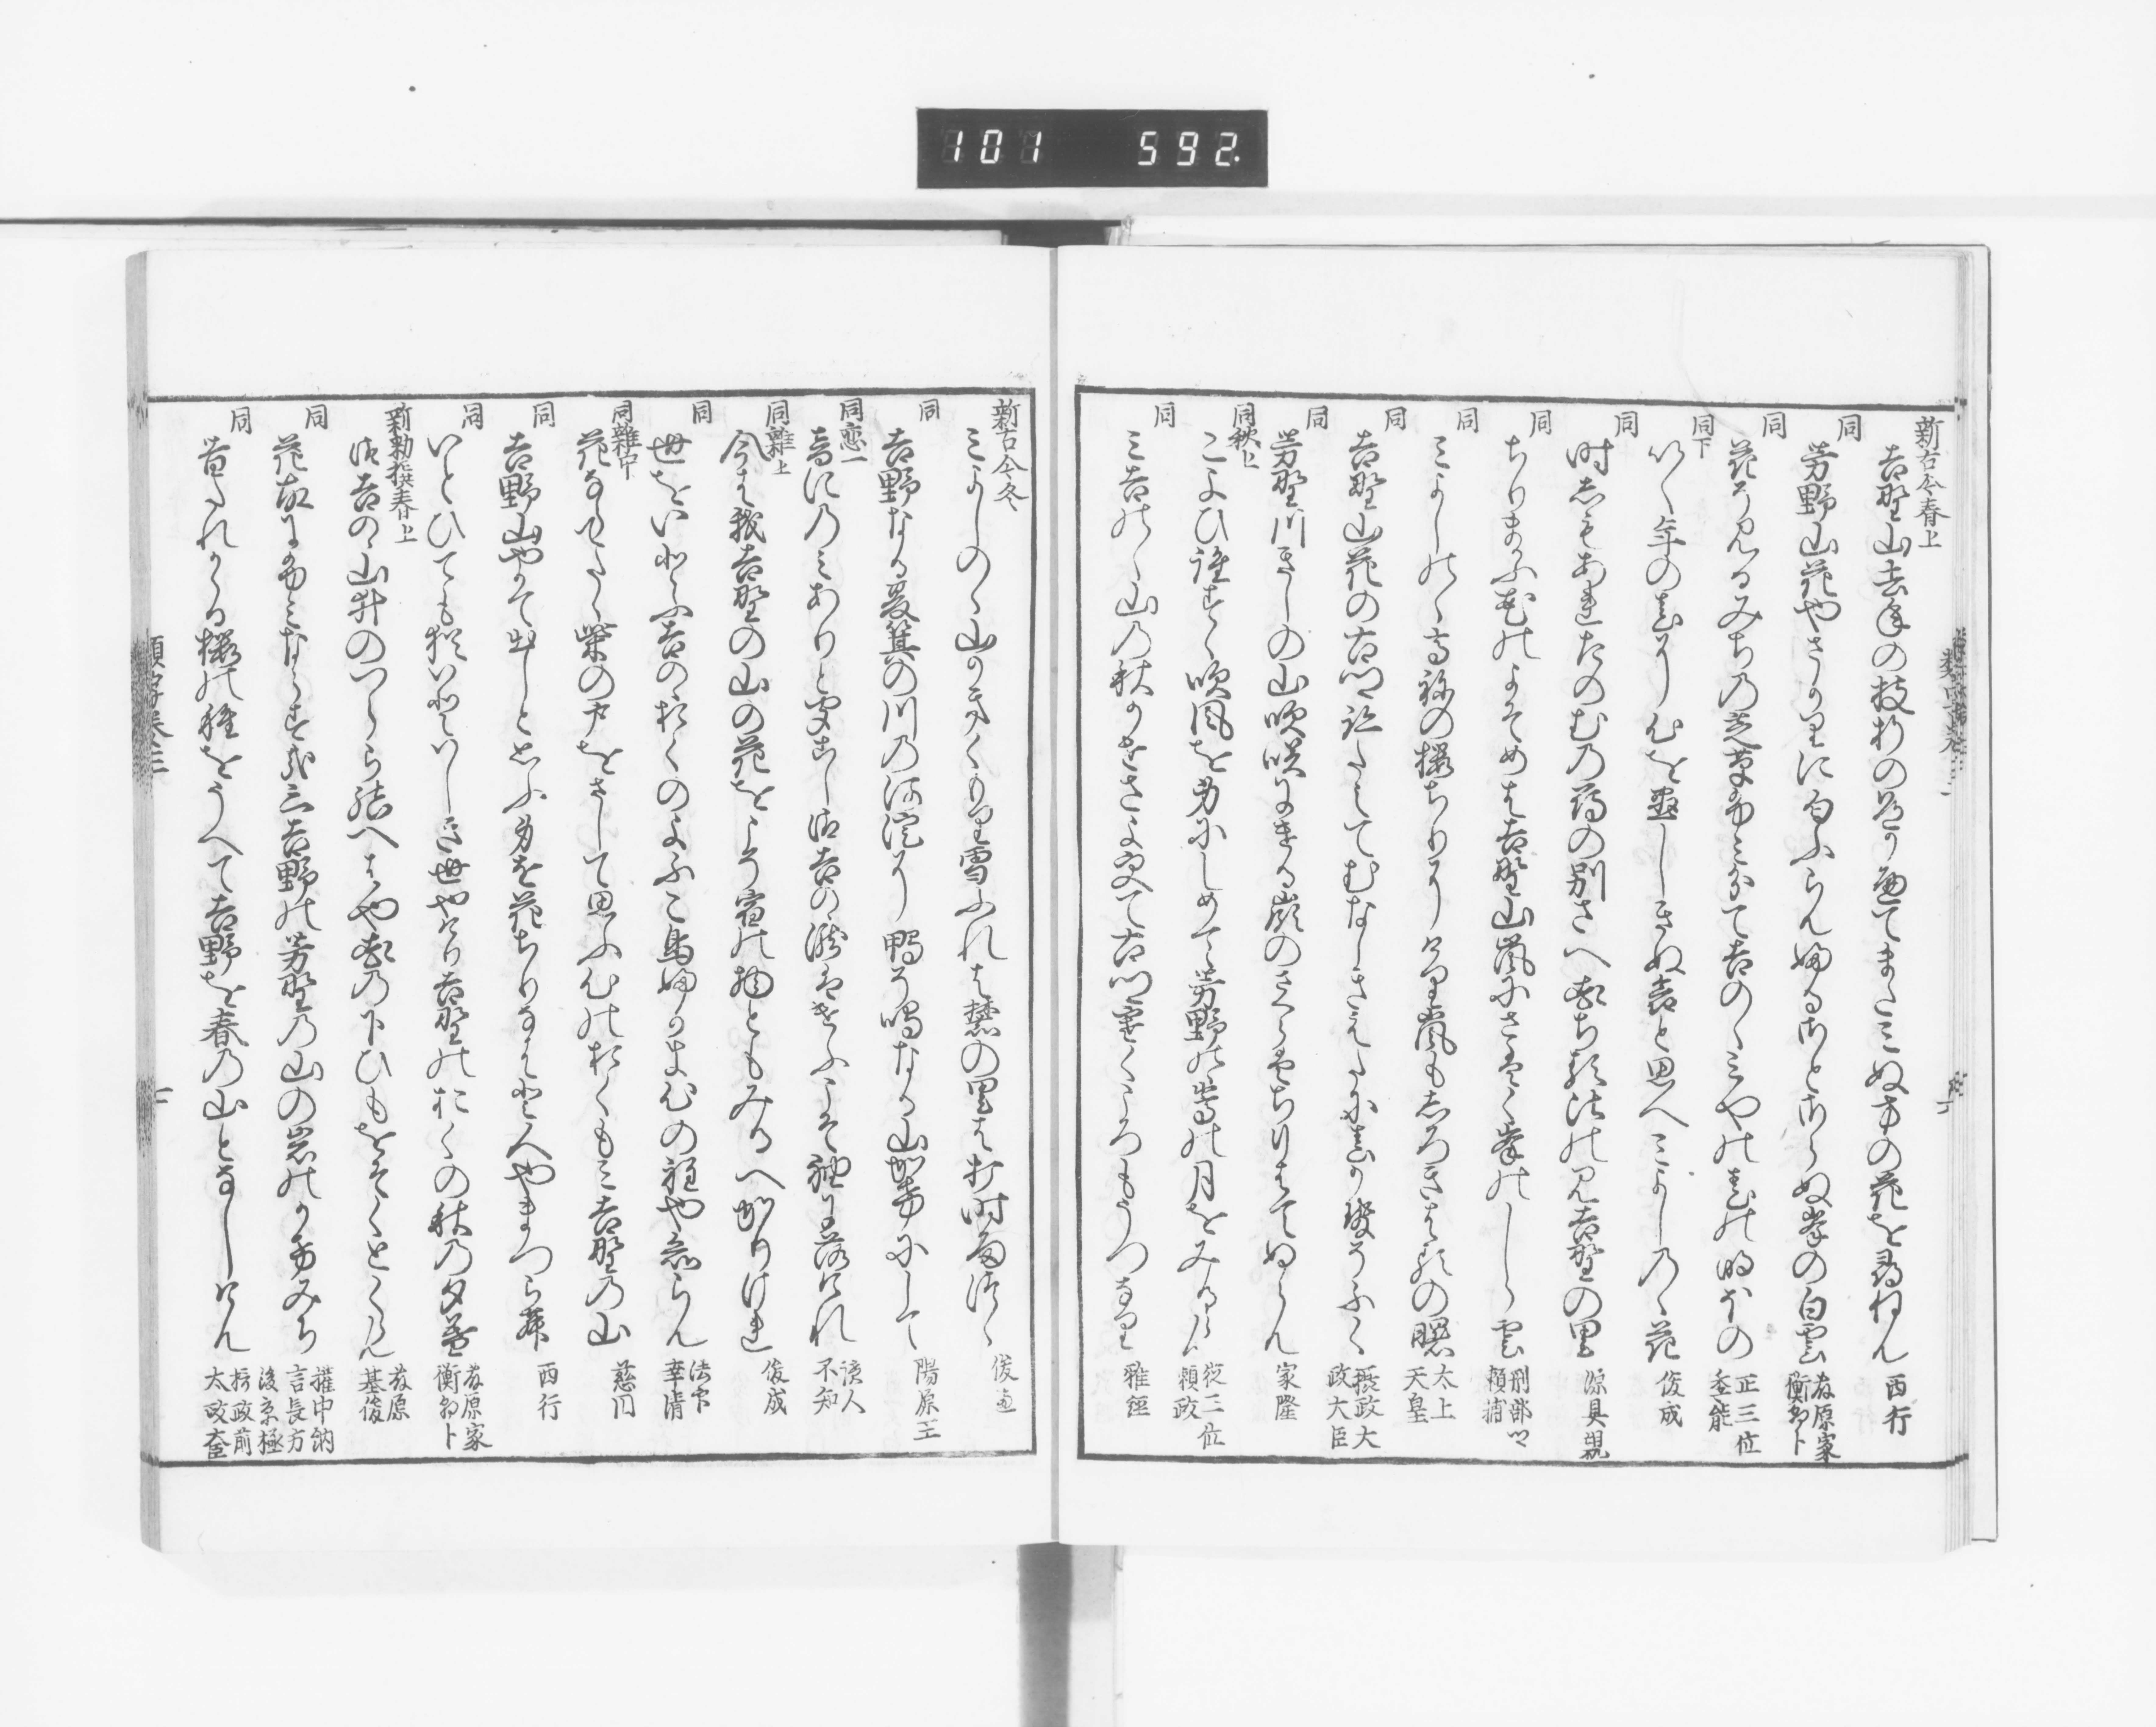 101 592.
新古今春上
吉野山去年の枝折の道かへてまたみぬ方の花を尋ねん 西行
同
芳野山花やさかりに匂ふらん
峯の白雲 藤原家衡
同
花そみるみちの芝草ふみ分て吉のゝみやの春の明ほの 正三位季能
同下
いく年の春に心を尽しきぬ哀と思へみよしのゝ花 俊成
同
時しもあれたのむの鴈の別さへ花ちる比のみ吉野の里 源具親
同
吉野山嵐にさはく峯のしら雲 刑部卿頼輔
同
みよしのゝ高ねの桜ちりにけり嵐もしろきはるの曙 太上天皇
同
吉野山花の古郷跡たえてむなしきえたに春かせそふく 摂政太政大臣
同
芳野川きしの山吹咲にけり嶺のさくらはちりはてぬらん 家隆
同秋上
こよひ誰すゝ吹風を身にしめて芳野の嵩の月をみるらん 従三位頼政
同
三吉のゝ山の秋かせさよ更て古郷寒くころもうつなり 雅経
新古今冬
みよしのゝ山かきくもり雪ふれは麓の里は打時雨つゝ 俊恵
同
吉野なる夏箕の川の河淀に鴨そ鳴なる山かけにして 湯原王
同恋一
音にのみありと聞こしみ吉の滝はけふこそ袖に落けれ 読人不知
同雑上
今は我吉野の山の花をこそ宿の物ともみるへかりけれ 俊成
同
世をいとふ吉の奥のよふこ鳥ふかき心の程やしるらん 法印幸清
同雑中
花ならてたゝ柴の戸をさして思ふ心のおくもみ吉野の山 慈円
同
吉野山やかて出しと思ふ身を花ちりなはと人やまつらん 西行
同
いとひても猶いとはしき世也けり吉野のおくの秋の夕暮 藤原家衡
新勅撰春上
み吉の山井のつらゝ結へはや花の下ひもをそくとくらん 藤原基俊
同
花故にふみならす哉三吉野の芳野の山の岩のかけみち 権中納言長方
同
昔たれかゝる桜の種をうへて吉野を春の山となしけん 後京極摂政前太政大臣